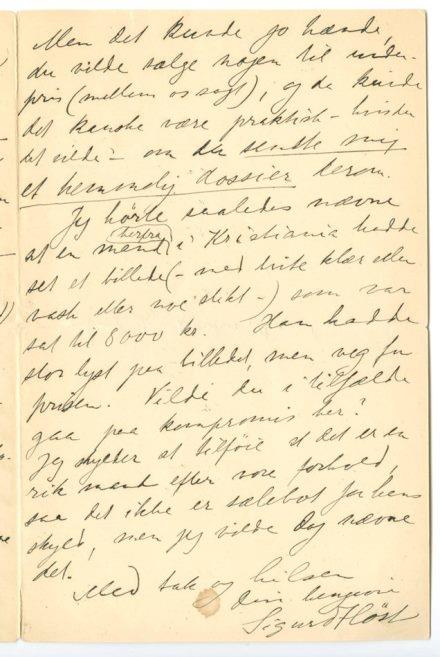 Men det kunde jo hænde,
du vilde sælge nogen til under-
pris (mellem os sagt), og da kunde
det kanske være praktisk – hvis du
det vilde – om du sendte mig
et hemmelig dossier derom.
Jeg hørte saaledes nævne
at en mand (herfra) i Kristiania hadde
set et billede (– med hvite klær eller
vask eller noe slikt –) som var
sat til 8000 kr. Han hadde
stor lyst paa billedet, men veg for
prisen. Vilde du i tilfælde
gaa paa kompromis her?
Jeg skylder at tilføie at det er en
rik mand efter vore forhold,
saa det ikke er for hans
skyld, men jeg vilde dog nævne
det.
Med tak og hilsen
Din hengivne
Sigurd Høst